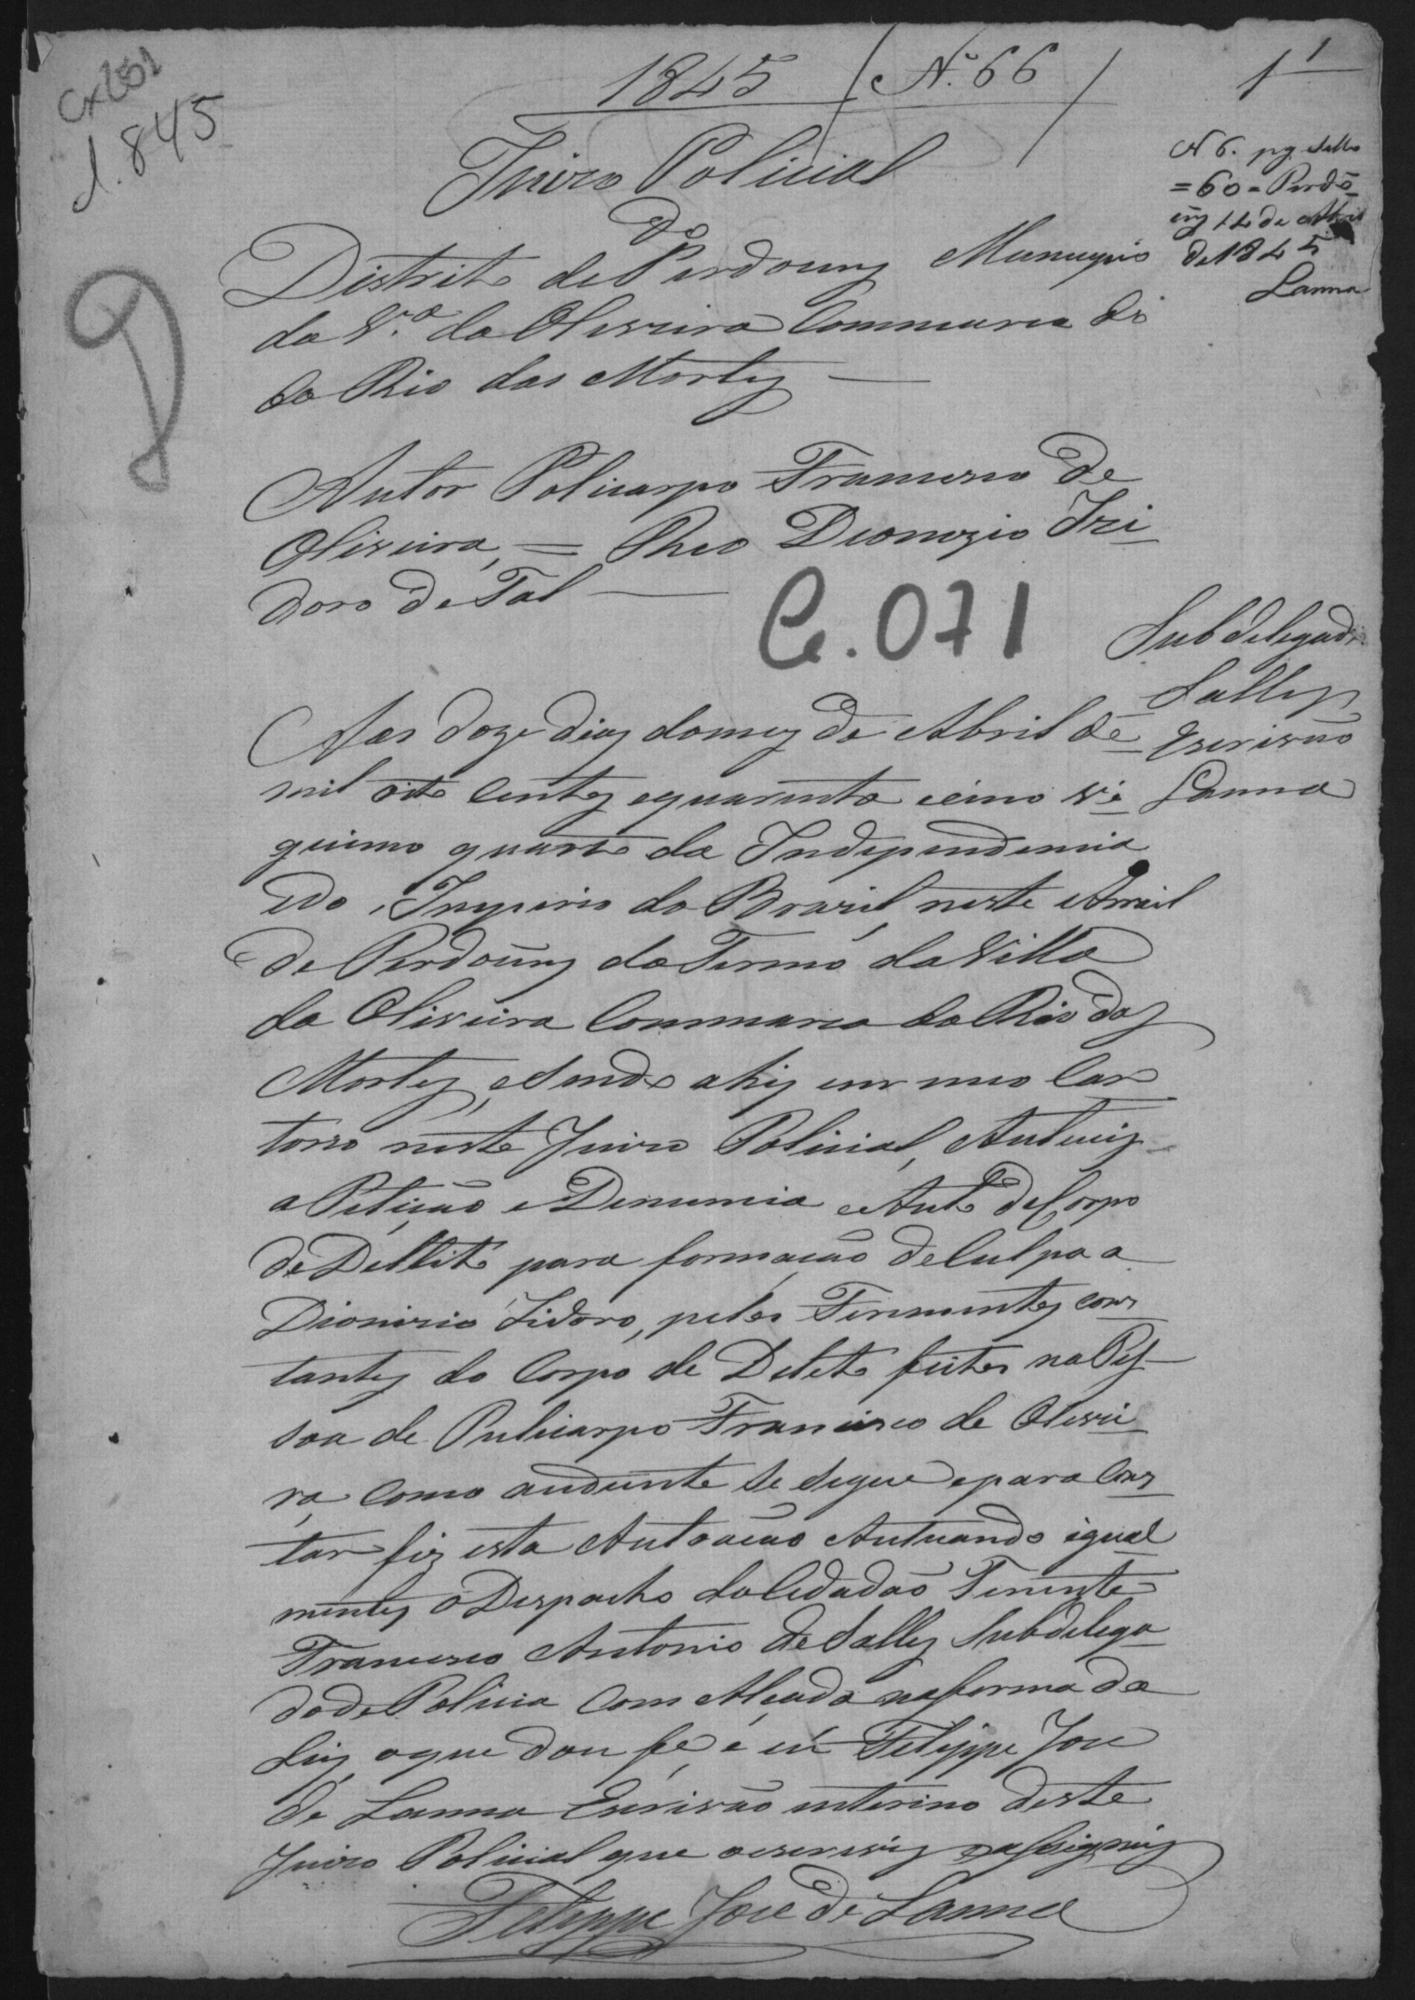 Cx 251
d. 845
1845 / Nº 66 /
1 1
N 6. pg. sello
= 60 = Perdõ
ins 12 de Abril
de 1845
Lanna
Juizo Policial
do
Districto de Perdoens Municipio
da Vª da Oliveira Commarca di
do Rio das Mortes
Autor Policarpo Francisco de
Oliveira, = Reo Dionozio Izi
doro de Tal
Ce. 071
Subdelegado
Salles
Escrivão
Lanna
Aos doze dias do mes de Abril de
mil oito centos e quarenta e cinco vi
gecimo quarto da Independencia
e do Imperio do Brazil neste Arraial
de Perdoens do Termo da Villa
da Oliveira Commarca do Rio das
Mortes, e sendo ahi em meo Car
torio neste Juizo Policial, Autuei
a Petição e Denuncia e Auto de Corpo
de Dellito para formação de Culpa a
Dionizio Izidoro, pelos Ferimentos cons
tantes do Corpo de Delito feitos na Pes
soa de Pulicarpo Francisco de Olivei
ra, como audiente se segue e para Cons
tar fiz esta Autoação Autuando igual
mentes o Despacho do Cidadão Tenente
Francisco Antonio de Salles Subdelega
do de Policia com Alçada na forma da
Lei, o que dou fé, e eu Felippe Jose
de Lanna Escrivão interino deste
Juizo Policial que o escrevi e assignei
Felippe Jose de Lanna